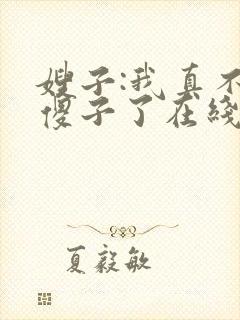 嫂子:我真不
傻子了在线
夏毅敏